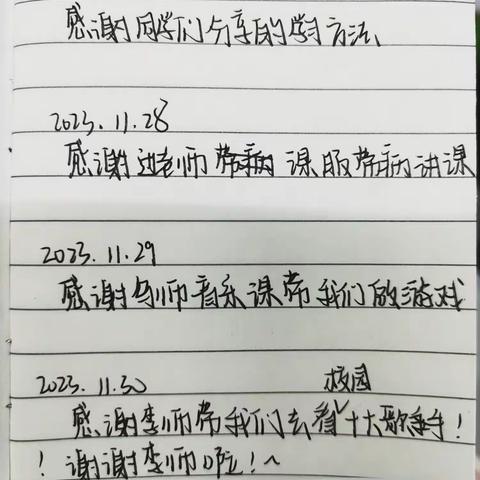 感谢同学们分享的学习方法、
2023.11.28
感谢赵老师带病课服带病讲课
2023.11.29
感谢乌师音乐课带我们做游戏
2023.11.30 校园
感谢李师带我们去看十大歌手!
!谢谢李师啦!~